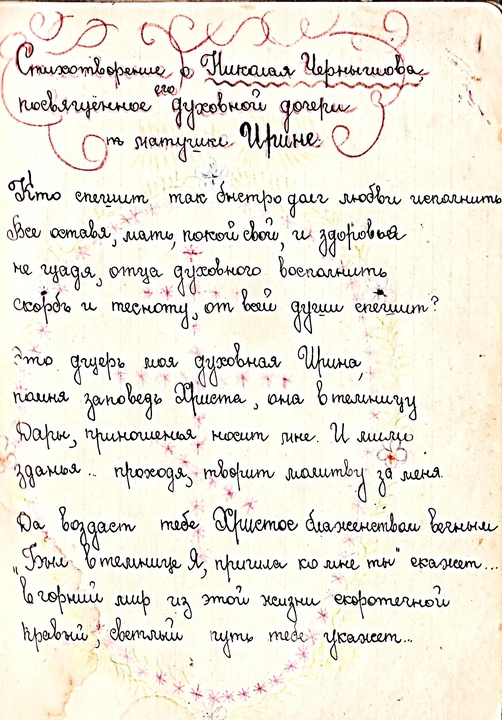 Стихотворение о Николая Чернышова,
посвящённое его духовной дочери
м матушке Ирине.
Кто спешит так быстро долг любви исполнить
Все оставя, мать, покой свой, и здоровья
не щадя, отца духовного восполнить
скорбь и тесноту, от всей души спешит?
Это дщерь моя духовная Ирина,
помня заповедь Христа, она в темницу
Дары, приношенья носит мне. И мимо
зданья.. проходя, творит молитву за меня.
Да воздаст тебе Христос блаженством вечным
„Был в темнице Я, пришла ко мне ты" скажет...
в горний мир из этой жизни скоротечной
правый, светлый путь тебе укажет...